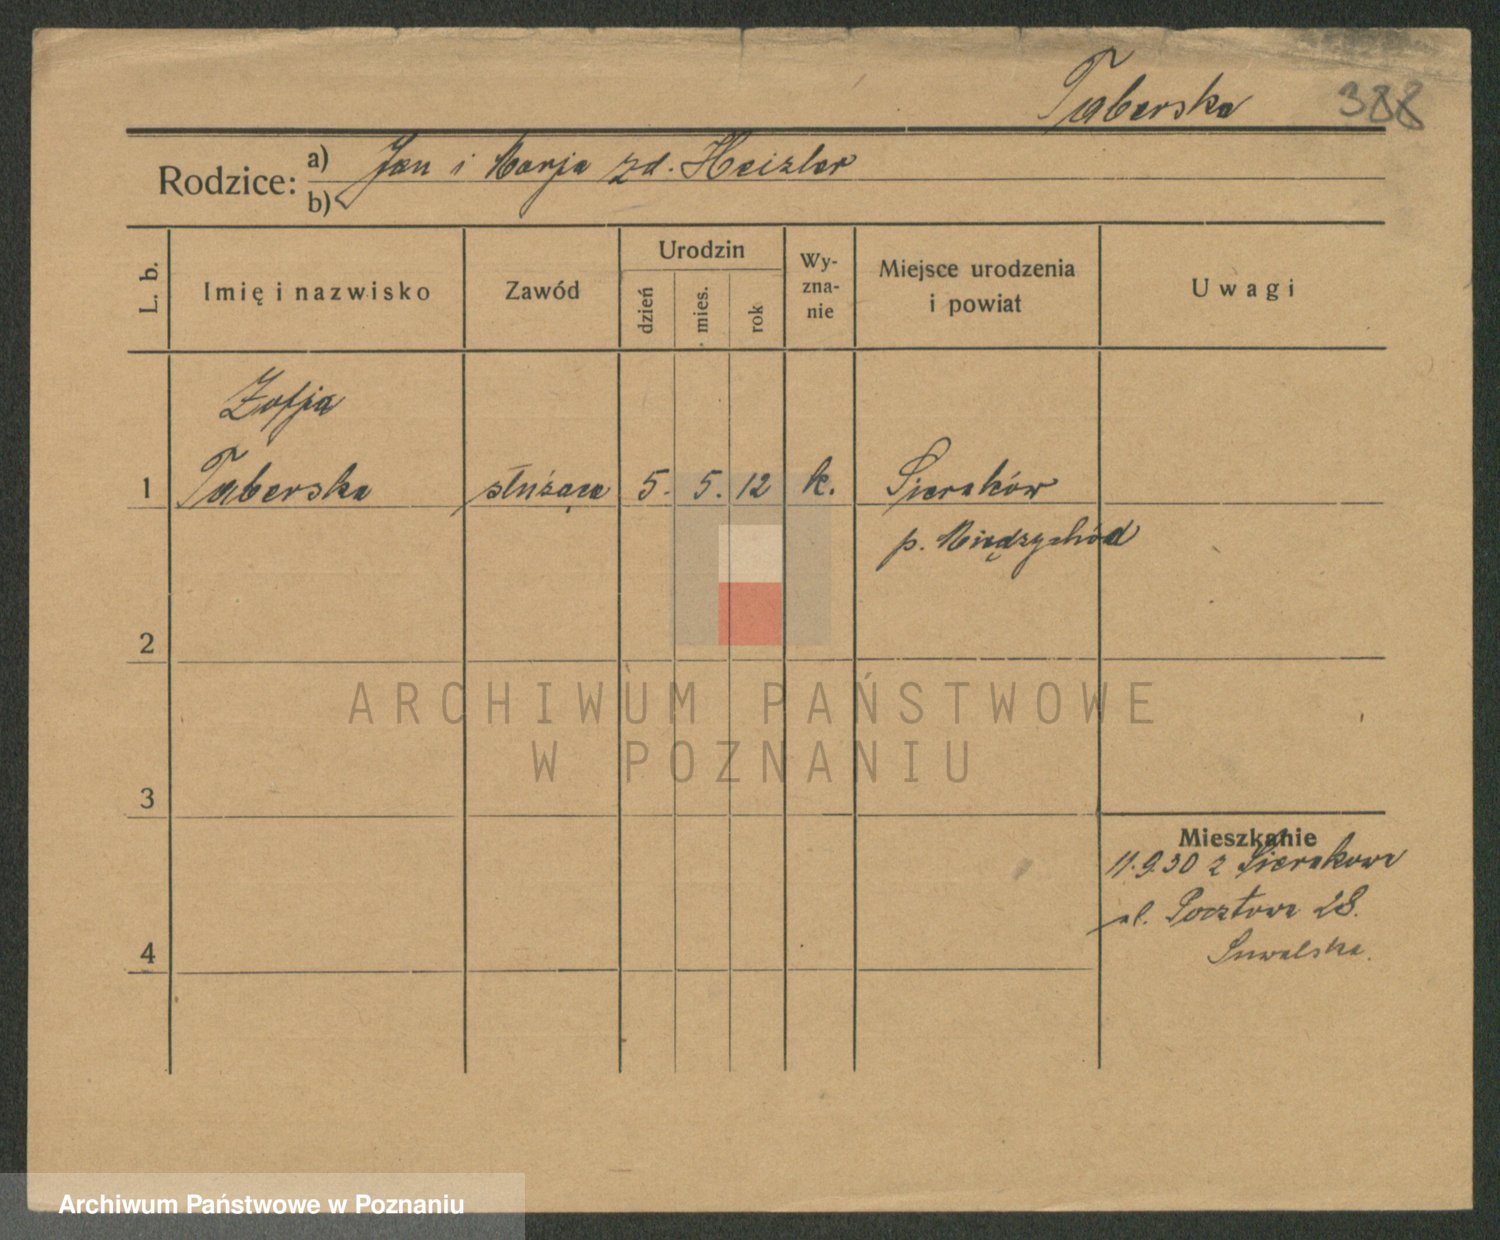 Taberska 388
Rodzice: a) Jan i Marja zd. Heizler
b)
L. b.
Imię i nazwisko
Zawód
Urodzin
dzień
mies.
rok
Wy-
zna-
nie
Miejsce urodzenia
i powiat
Uwagi
Zofja
1 Taberska służąca 5. 5. 12 k. Sieraków
p. Międzychód
2
ARCHIWUM PAŃSTWOWE
W POZNANIU
3
Mieszkanie
11.9.30 z Sierakowa
ul. Pocztowa 28.
4 Suwalska.
Archiwum Państwowe w Poznaniu